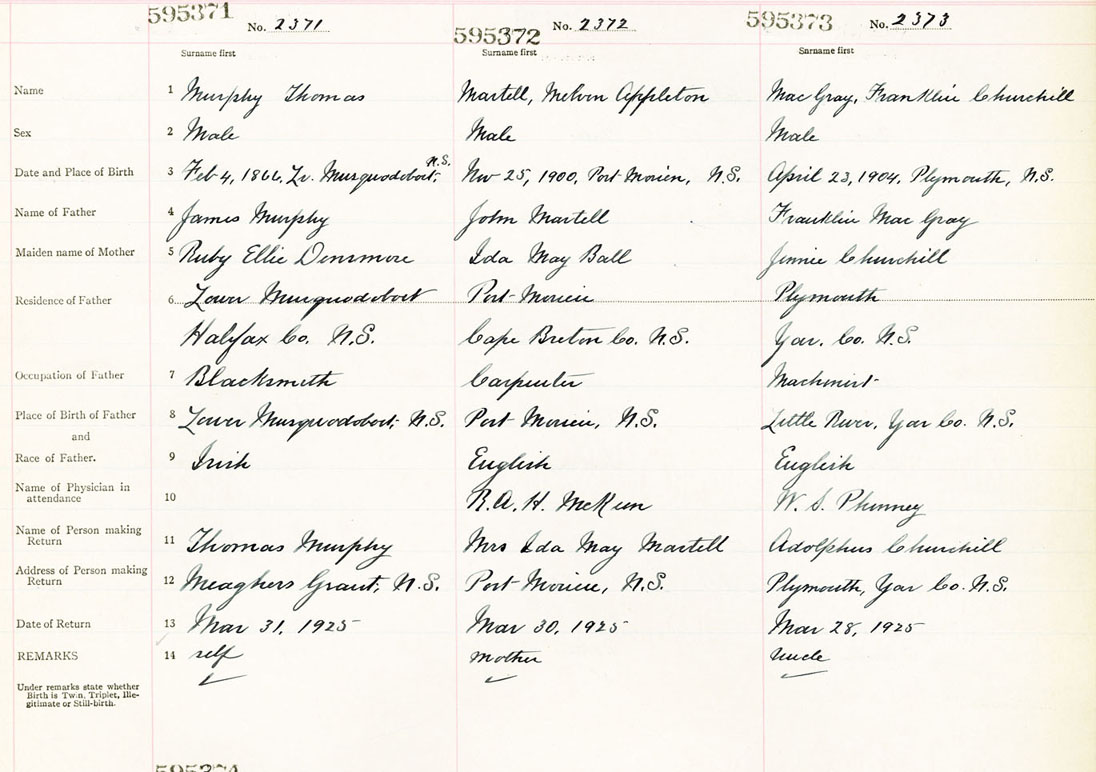 595371 No. 2371 595372 No. 2372 595373 No. 2373
Surname first Surname first Surname first
Name 1 Murphy Thomas Martell, Melvin Appleton MacGray, Franklin Churchill
Sex 2 Male Male Male
Date and Place of Birth 3 Feb 4, 1866, Lr. Musquodoboit, N.S. Nov 25, 1900, Port Morien, N.S. April 23, 1904, Plymouth, N.S.
Name of Father 4 James Murphy John Martell Franklin MacGray
Maiden name of Mother 5 Ruby Ellie Densmore Ida May Ball Jinnie Churchill
Residence of Father 6 Lower Musquodoboit Port Morien Plymouth
Halifax Co. N.S. Cape Breton Co. N.S. Yar. Co. N.S.
Occupation of Father 7 Blacksmith Carpenter Machinist
Place of Birth of Father 8 Lower Musquodoboit, N.S. Port Morien, N.S. Little River, Yar Co. N.S.
and
Race of Father. 9 Irish English English
Name of Physician in
attendance 10 R.A.H. McKeen W. S. Phinney
Name of Person making
Return 11 Thomas Murphy Mrs Ida May Martell Adolphus Churchill
Address of Person making
Return 12 Meaghers Grant, N.S. Port Morien, N.S. Plymouth, Yar Co. N.S.
Date of Return 13 Mar 31, 1925 Mar 30, 1925 Mar 28, 1925
REMARKS 14 self mother uncle
Under remarks state whether
Birth is Twin, Triplet, Ille-
gitimate or Still-birth.
595374